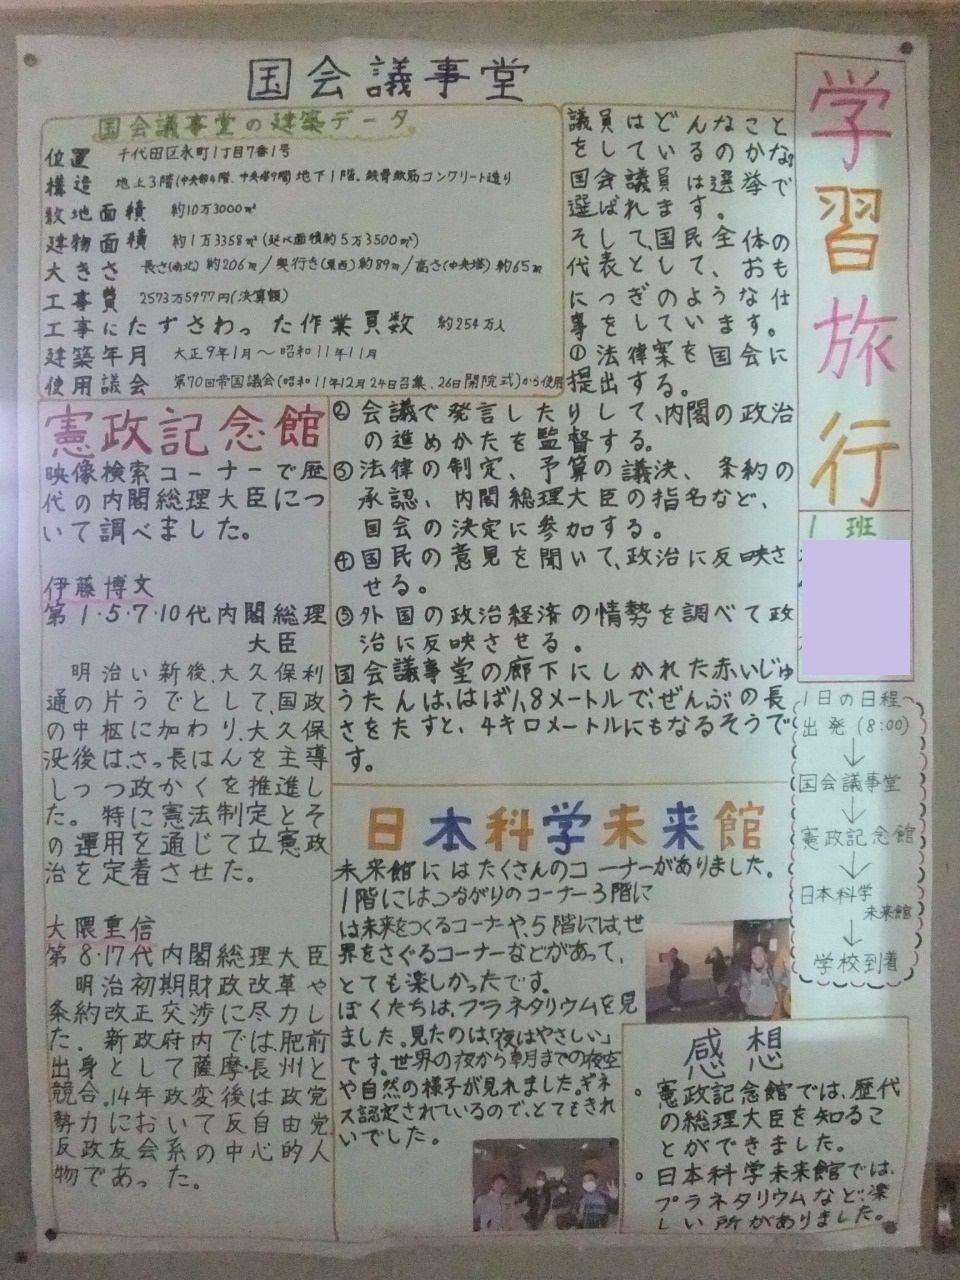 国会議事堂
国会議事堂の建築データ
位置 千代田区永町1丁目7番1号
構造 地上3階(中央部4階、中央塔9階)地下1階、鉄骨鉄筋コンクリート造り
敷地面積 約10万3000㎡
建物面積 約1万3358㎡(延べ面積約5万3500㎡)
大きさ 長さ(南北)約206m/奥行き(東西)約89m/高さ(中央塔)約65m
工事費 2573万5977円(決算額)
工事にたずさわった作業員数 約254万人
建築年月 大正9年1月～昭和11年11月
使用議会 第70回帝国議会(昭和11年12月24日召集、26日開院式)から使用
議員はどんなこと
をしているのかな?
国会議員は選挙で
選ばれます。
そして、国民全体の
代表として、おも
につぎのような仕
事をしています。
①法律案を国会に
提出する。
②会議で発言したりして、内閣の政治
の進めかたを監督する。
③法律の制定、予算の議決、条約の
承認、内閣総理大臣の指名など、
国会の決定に参加する。
④国民の意見を聞いて、政治に反映さ
せる。
⑤外国の政治経済の情勢を調べて政
治に反映させる。
国会議事堂の廊下にしかれた赤いじゅ
うたんは、はば1,8メートルで、ぜんぶの長
さをたすと、4キロメートルにもなるそうで
す。
憲政記念館
映像検索コーナーで歴
代の内閣総理大臣につ
いて調べました。
伊藤博文
第1・5・7・10代内閣総理
大臣
明治い新後、大久保利
通の片うでとして、国政
の中枢に加わり、大久保
没後は、さっ長はんを主導
しつつ政かくを推進し
た。特に憲法制定とそ
の運用を通じて立憲政
治を定着させた。
大隈重信
第8・17代内閣総理大臣
明治初期財政改革や
条約改正交渉に尽力し
た。新政府内では、肥前
出身として薩摩・長州と
競合。14年政変後は政党
勢力において反自由党
反政友会系の中心的人
物であった。
日本科学未来館
未来館にはたくさんのコーナーがありました。
1階にはつながりのコーナー、3階に
は未来をつくるコーナーや、5階には、世
界をさぐるコーナーなどがあって、
とても楽しかったです。
ぼくたちは、プラネタリウムを見
ました。見たのは、「夜はやさしい」
です。世界の夜から朝までの夜空
や自然の様子が見れました。ギネ
ス認定されているので、とてもきれ
いでした。
学習旅行
1班
1日の日程
出発(8:00)
↓
国会議事堂
↓
憲政記念館
↓
日本科学
未来館
↓
学校到着
感想
。憲政記念館では、歴代
の総理大臣を知るこ
とができました。
。日本科学未来館では、
プラネタリウムなど、楽
しい所がありました。